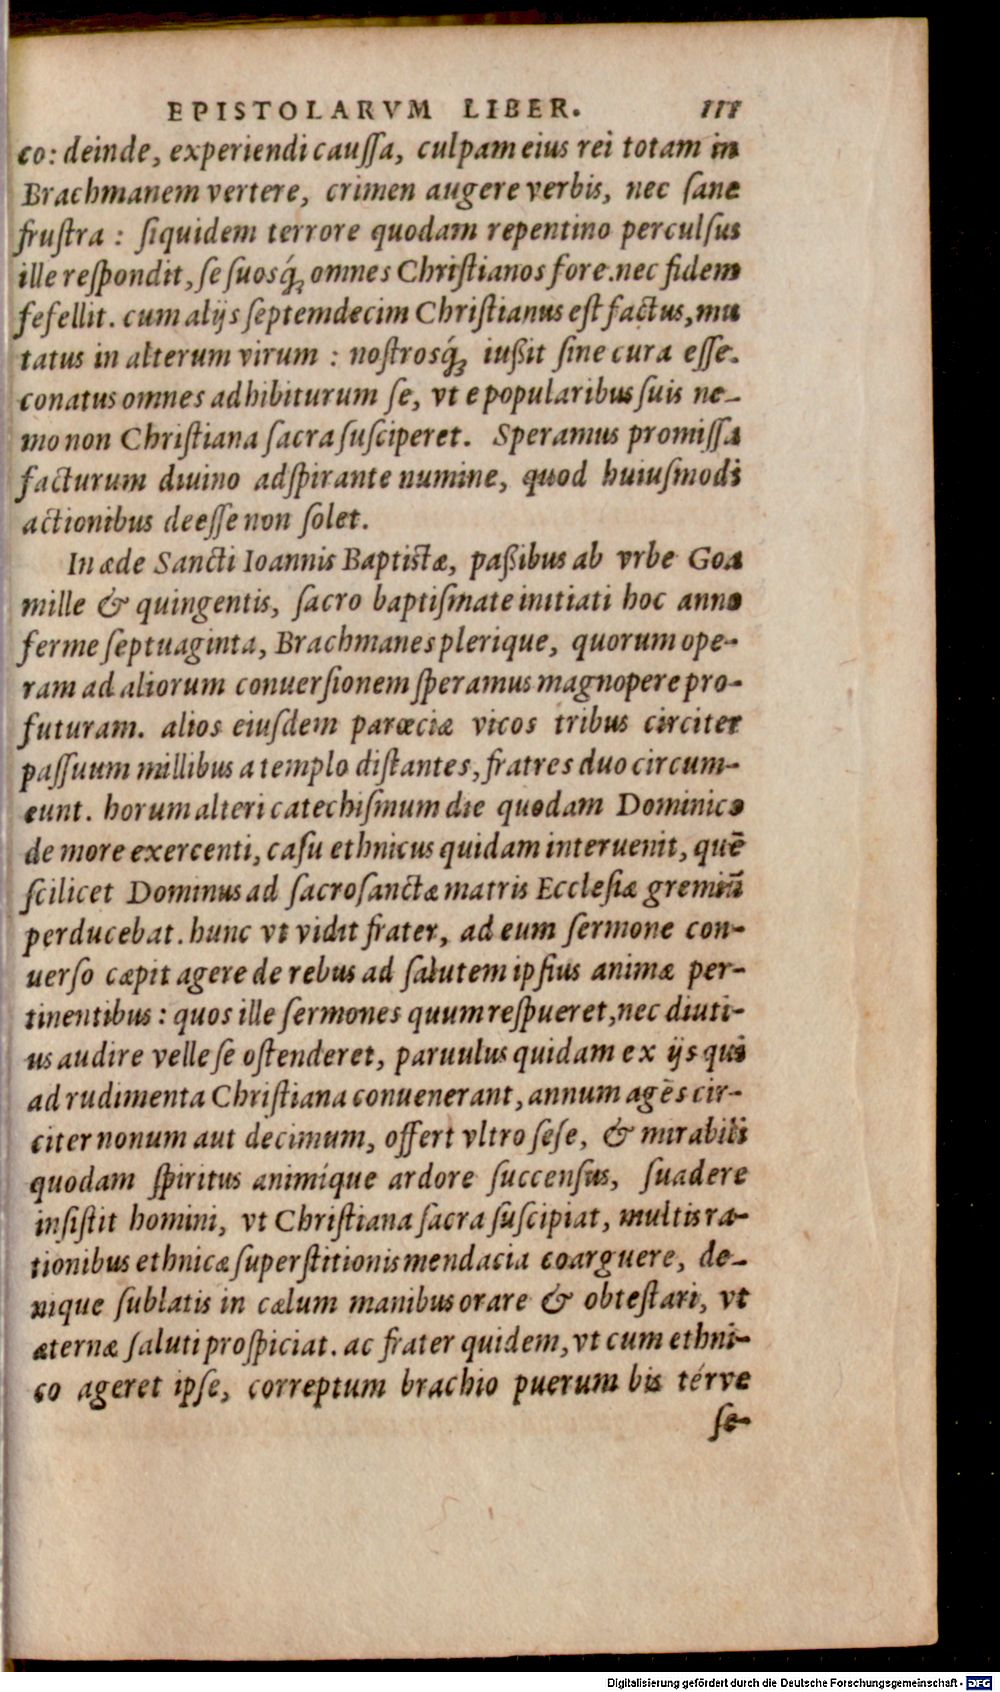 EPISTOLARVM LIBER. 111
co: deinde, experiendi caussa, culpam eius rei totam in
Brachmanem vertere, crimen augere verbis, nec sane
frustra : siquidem terrore quodam repentino perculsus
ille respondit, se suosq́; omnes Christianos fore. nec fidem
fefellit. cum alijs septemdecim Christianus est factus, mu
tatus in alterum virum : nostrosq́; iußit sine cura esse.
conatus omnes adhibiturum se, vt e popularibus suis ne-
mo non Christiana sacra susciperet. Speramus promissa
facturum diuino adspirante numine, quod huiusmodi
actionibus deesse non solet.
In æde Sancti Ioannis Baptistæ, paßibus ab vrbe Goa
mille & quingentis, sacro baptismate initiati hoc anno
ferme septuaginta, Brachmanes plerique, quorum ope-
ram ad aliorum conuersionem speramus magnopere pro-
futuram. alios eiusdem parœciæ vicos tribus circiter
passuum millibus a templo distantes, fratres duo circum-
eunt. horum alteri catechismum die quodam Dominico
de more exercenti, casu ethnicus quidam interuenit, quē
scilicet Dominus ad sacrosanctæ matris Ecclesiæ gremiū
perducebat. hunc vt vidit frater, ad eum sermone con-
uerso cæpit agere de rebus ad salutem ipsius animæ per-
tinentibus : quos ille sermones quum respueret, nec diuti-
us audire velle se ostenderet, paruulus quidam ex ijs qui
ad rudimenta Christiana conuenerant, annum agēs cir-
citer nonum aut decimum, offert vltro sese, & mirabili
quodam spiritus animíque ardore succensus, suadere
insistit homini, vt Christiana sacra suscipiat, multis ra-
tionibus ethnicæ superstitionis mendacia coarguere, de-
nique sublatis in cælum manibus orare & obtestari, vt
æternæ saluti prospiciat. ac frater quidem, vt cum ethni-
co ageret ipse, correptum brachio puerum bis térve
se-
Digitalisierung gefördert durch die Deutsche Forschungsgemeinschaft - DFG